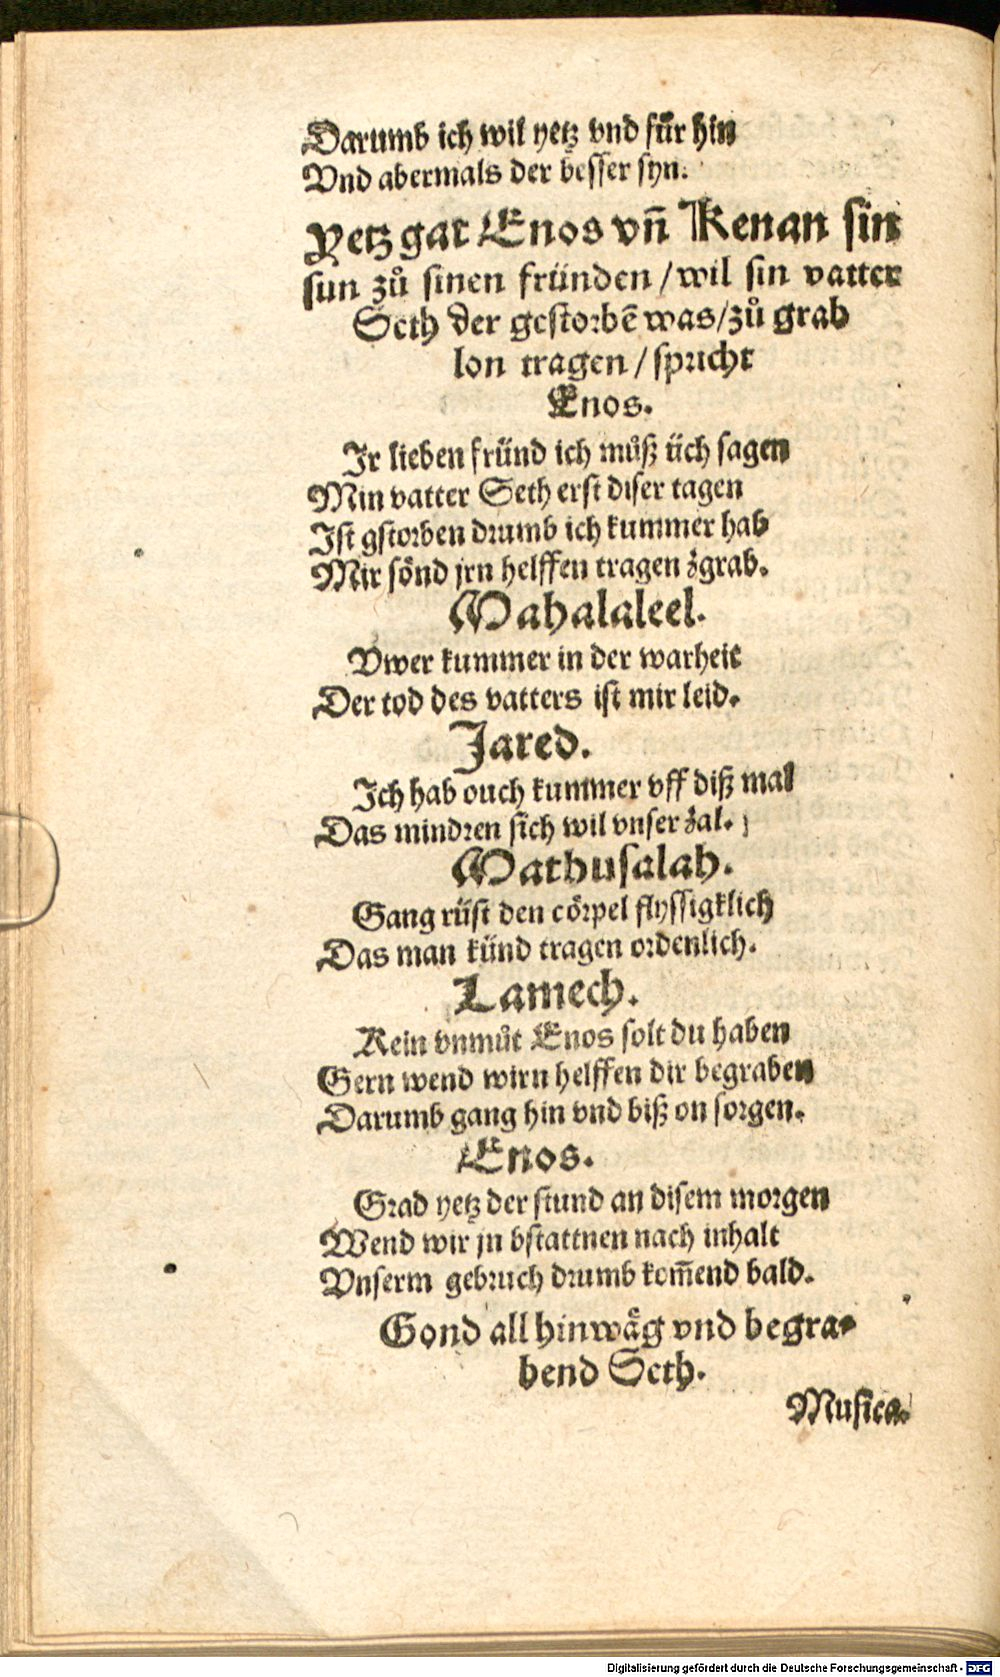 Darumb ich wil yetz vnd für hin
Vnd abermals der besser syn.
Yetz gat Enos vñ Kenan sin
sun zů sinen fründen / wil sin vatter
Seth der gestorbẽ was / zů grab
lon tragen / spricht
Enos.
Ir lieben fründ ich můß üch sagen
Min vatter Seth erst diser tagen
Ist gstorben drumb ich kummer hab
Mir sönd jrn helffen tragen zgrab.
Mahalaleel.
Vwer kummer in der warheit
Der tod des vatters ist mir leid.
Jared.
Ich hab ouch kummer vff diß mal
Das mindren sich wil vnser zal.
Mathusalah.
Gang rüst den cörpel flyssigklich
Das man künd tragen ordenlich.
Lamech.
Kein vnmůt Enos solt du haben
Gern wend wirn helffen dir begraben
Darumb gang hin vnd biß on sorgen.
Enos.
Grad yetz der stund an disem morgen
Wend wir jn bstattnen nach inhalt
Vnserm gebruch drumb kom̃end bald.
Gond all hinwäg vnd begra-
bend Seth.
Musica.
Digitalisierung gefördert durch die Deutsche Forschungsgemeinschaft - DFG